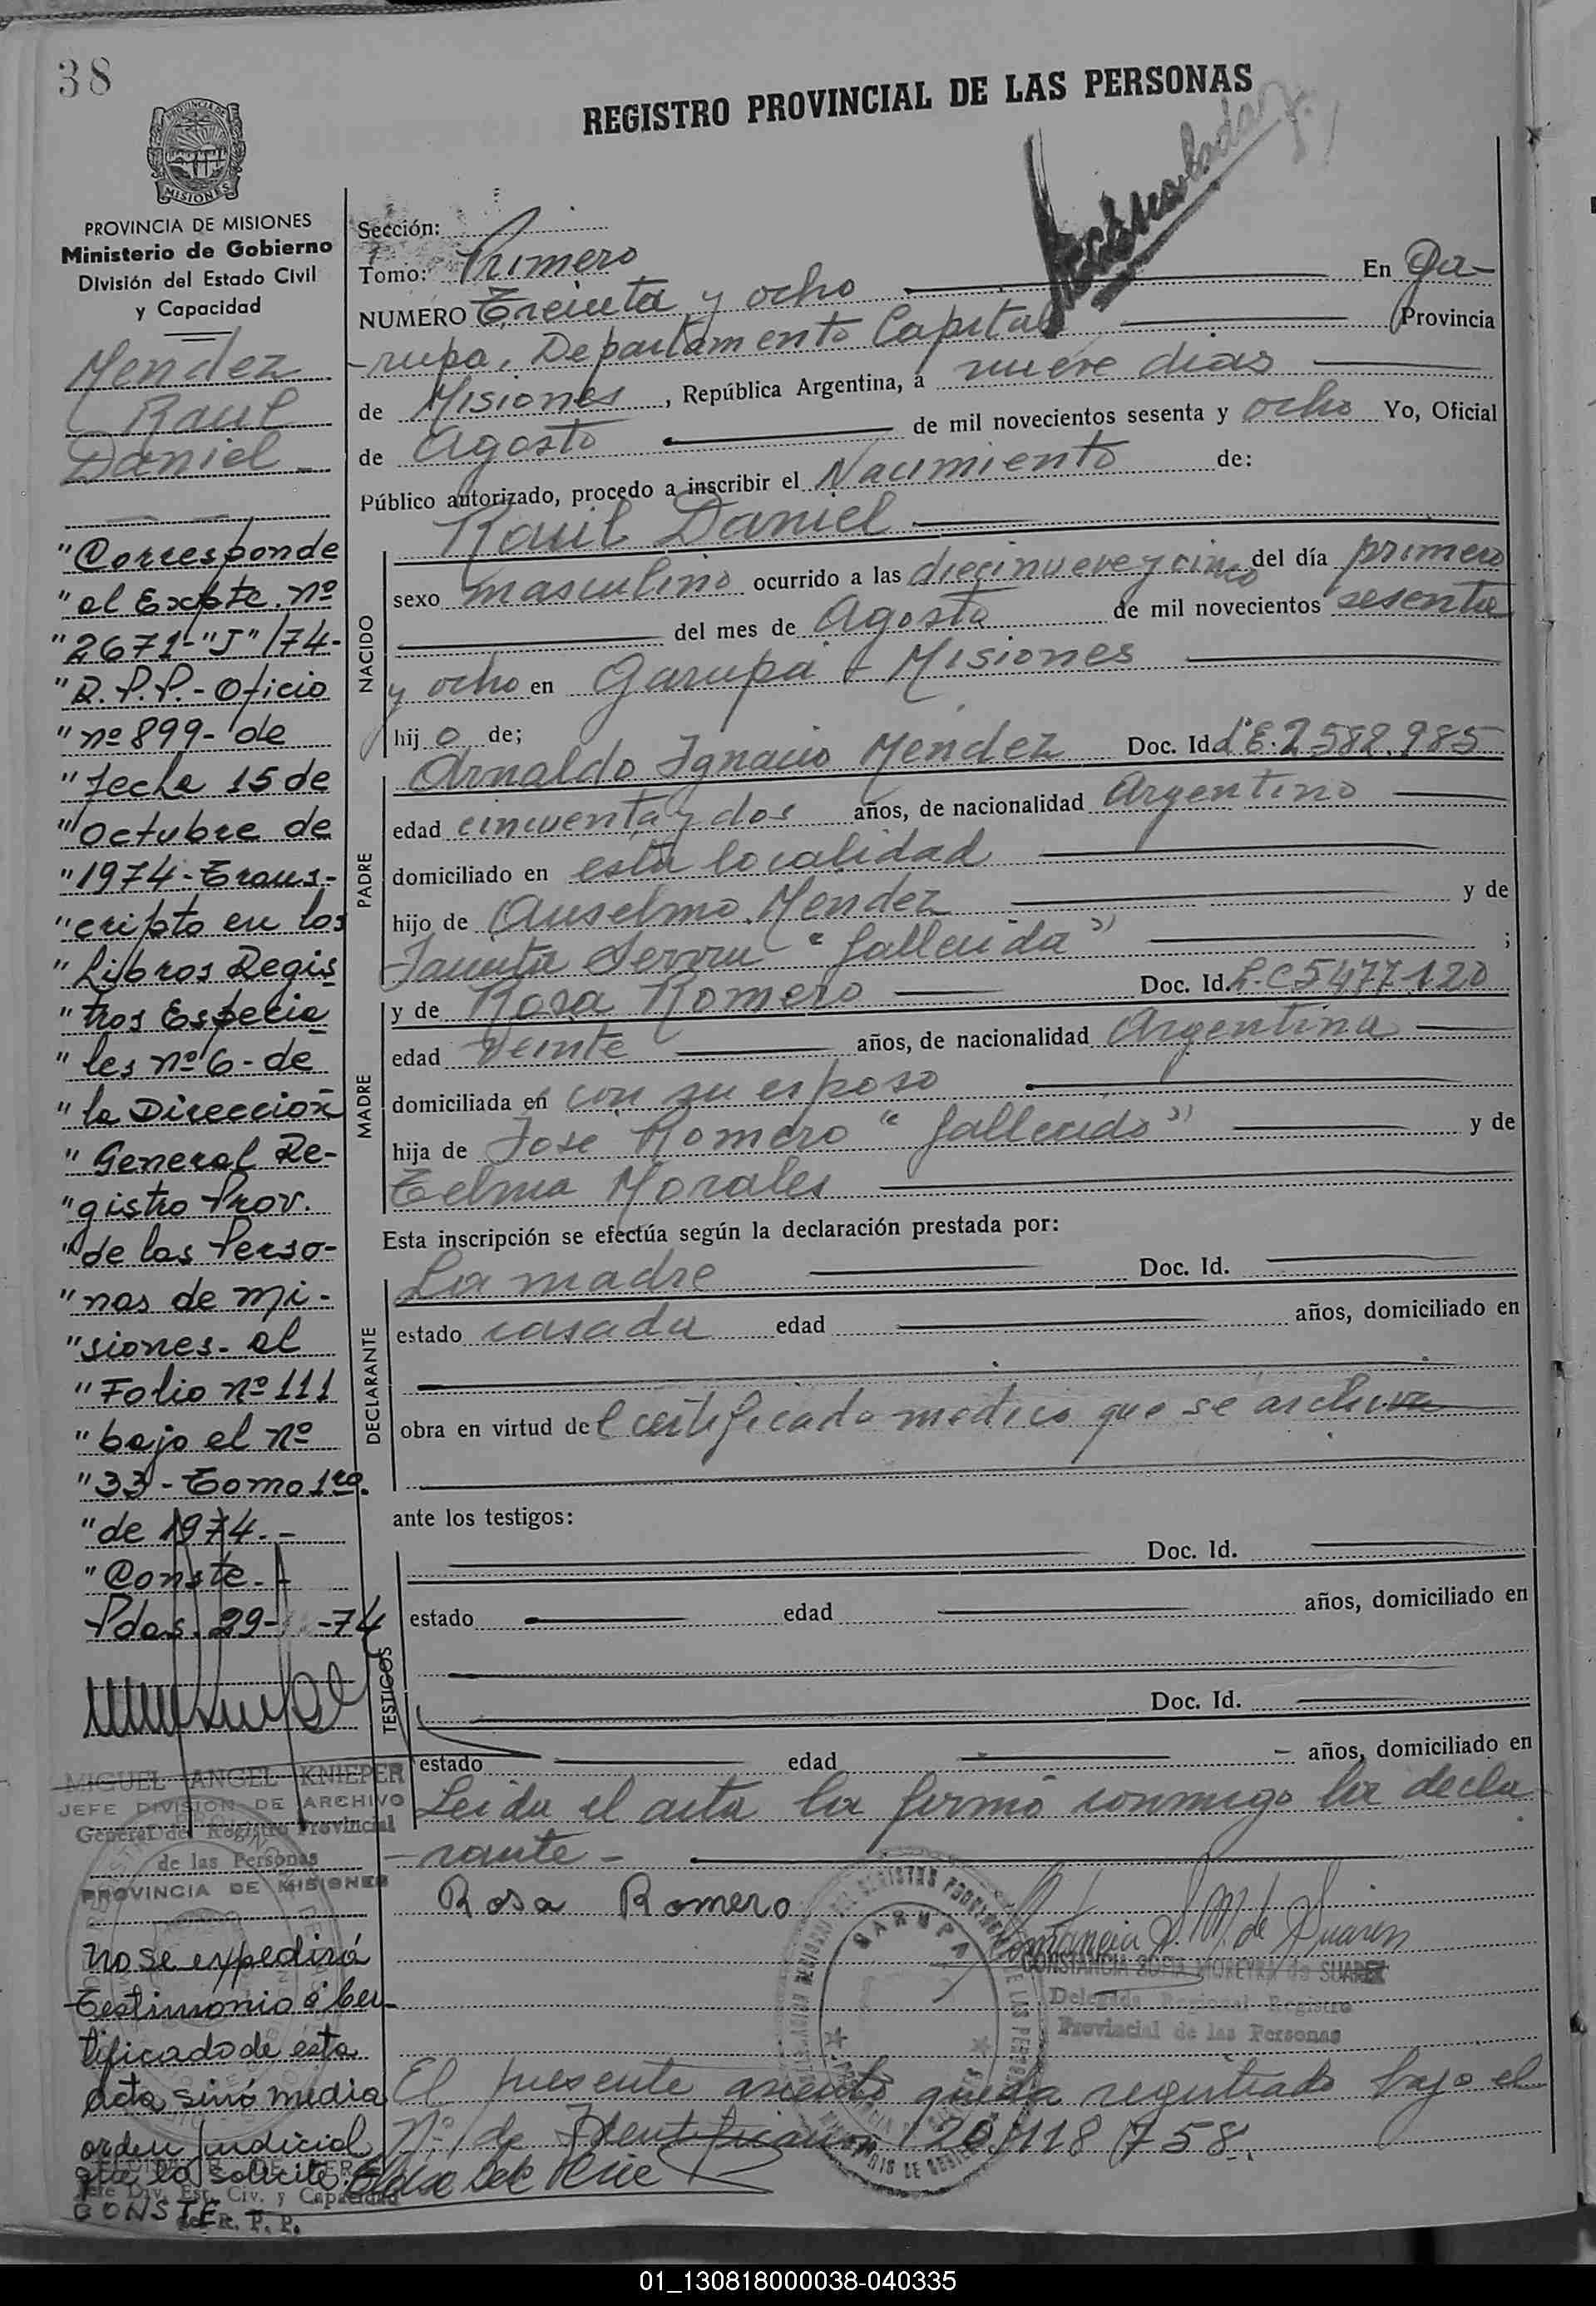 38
REGISTRO PROVINCIAL DE LAS PERSONAS
PROVINCIA DE MISIONES
Ministerio de Gobierno
División del Estado Civil
y Capacidad
Mendez
Raul
Daniel
"Corresponde
"al Expte. nº
"2671-"J"/74-
"R.P.P.- Oficio
"nº 899- de
"fecha 15 de
"Octubre de
"1974- Trans-
"cripto en los
"Libros Regis
"tros Especia
"les nº 6- de
"la Dirección
"General Re-
"gistro Prov.
"de las Perso-
"nas de Mi-
"siones- al
"Folio nº 111
"bajo el nº
"33- Tomo 1ro.
"de 1974.-
"Conste.-
Pdas. 29- -74
MIGUEL ANGEL KNIEPER
JEFE DIVISION DE ARCHIVO
General del Registro Provincial
de las Personas
PROVINCIA DE MISIONES
No se expedirá
testimonio o cer-
tificado de esta
acta sinó media
orden judicial
que lo solicite.
CONSTE.-
Jefe Div. Est. Civ. y Capacidad
del R. P. P.
Sección:
Tomo: Primero
NUMERO Treinta y ocho En Ga-
rupa, Departamento Capital Provincia
de Misiones, República Argentina, a nueve dias
de Agosto de mil novecientos sesenta y ocho Yo, Oficial
Público autorizado, procedo a inscribir el Nacimiento de:
Raul Daniel
NACIDO
sexo masculino ocurrido a las diecinueve y cinco del día primero
del mes de Agosto de mil novecientos sesenta
y ocho en Garupa - Misiones
hijo de;
PADRE
Arnaldo Ignacio Mendez Doc. Id. L.E. 2582.985
edad cincuenta y dos años, de nacionalidad Argentino
domiciliado en esta localidad
hijo de Anselmo Mendez y de
"fallecida" ;
MADRE
y de Rosa Romero Doc. Id. L.C 5477120
edad veinte años, de nacionalidad Argentina
domiciliada en con su esposo
hija de Jose Romero "fallecido" y de
Telma Morales
Esta inscripción se efectúa según la declaración prestada por:
DECLARANTE
La madre Doc. Id.
estado casada edad años, domiciliado en
obra en virtud del certificado medico que se archiva
ante los testigos:
TESTIGOS
Doc. Id.
estado edad años, domiciliado en
Doc. Id.
estado edad años, domiciliado en
Leida el acta la firmó conmigo la decla
rante -
Rosa Romero
Constancia S. M. de Suarez
CONSTANCIA SOFIA MOREYRA de SUAREZ
Delegada Regional Registro
Provincial de las Personas
GARUPA
El presente asiento queda registrado bajo el
Nº de Identificacion 20.118.758.
01_130818000038-040335